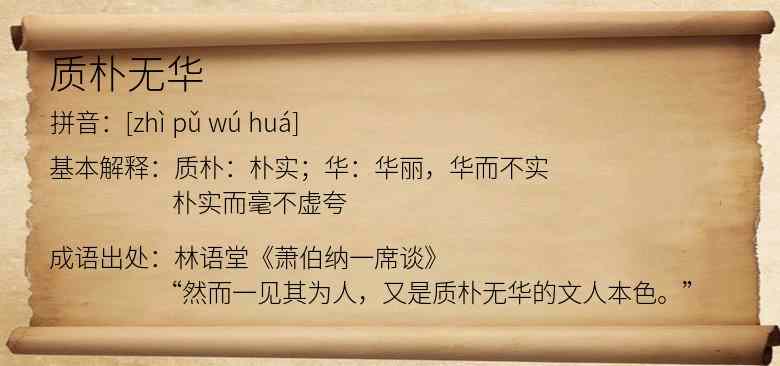 质朴无华
拼音：[zhì pǔ wú huá]
基本解释：质朴：朴实；华：华丽，华而不实
朴实而毫不虚夸
成语出处：林语堂《萧伯纳一席谈》
“然而一见其为人，又是质朴无华的文人本色。”